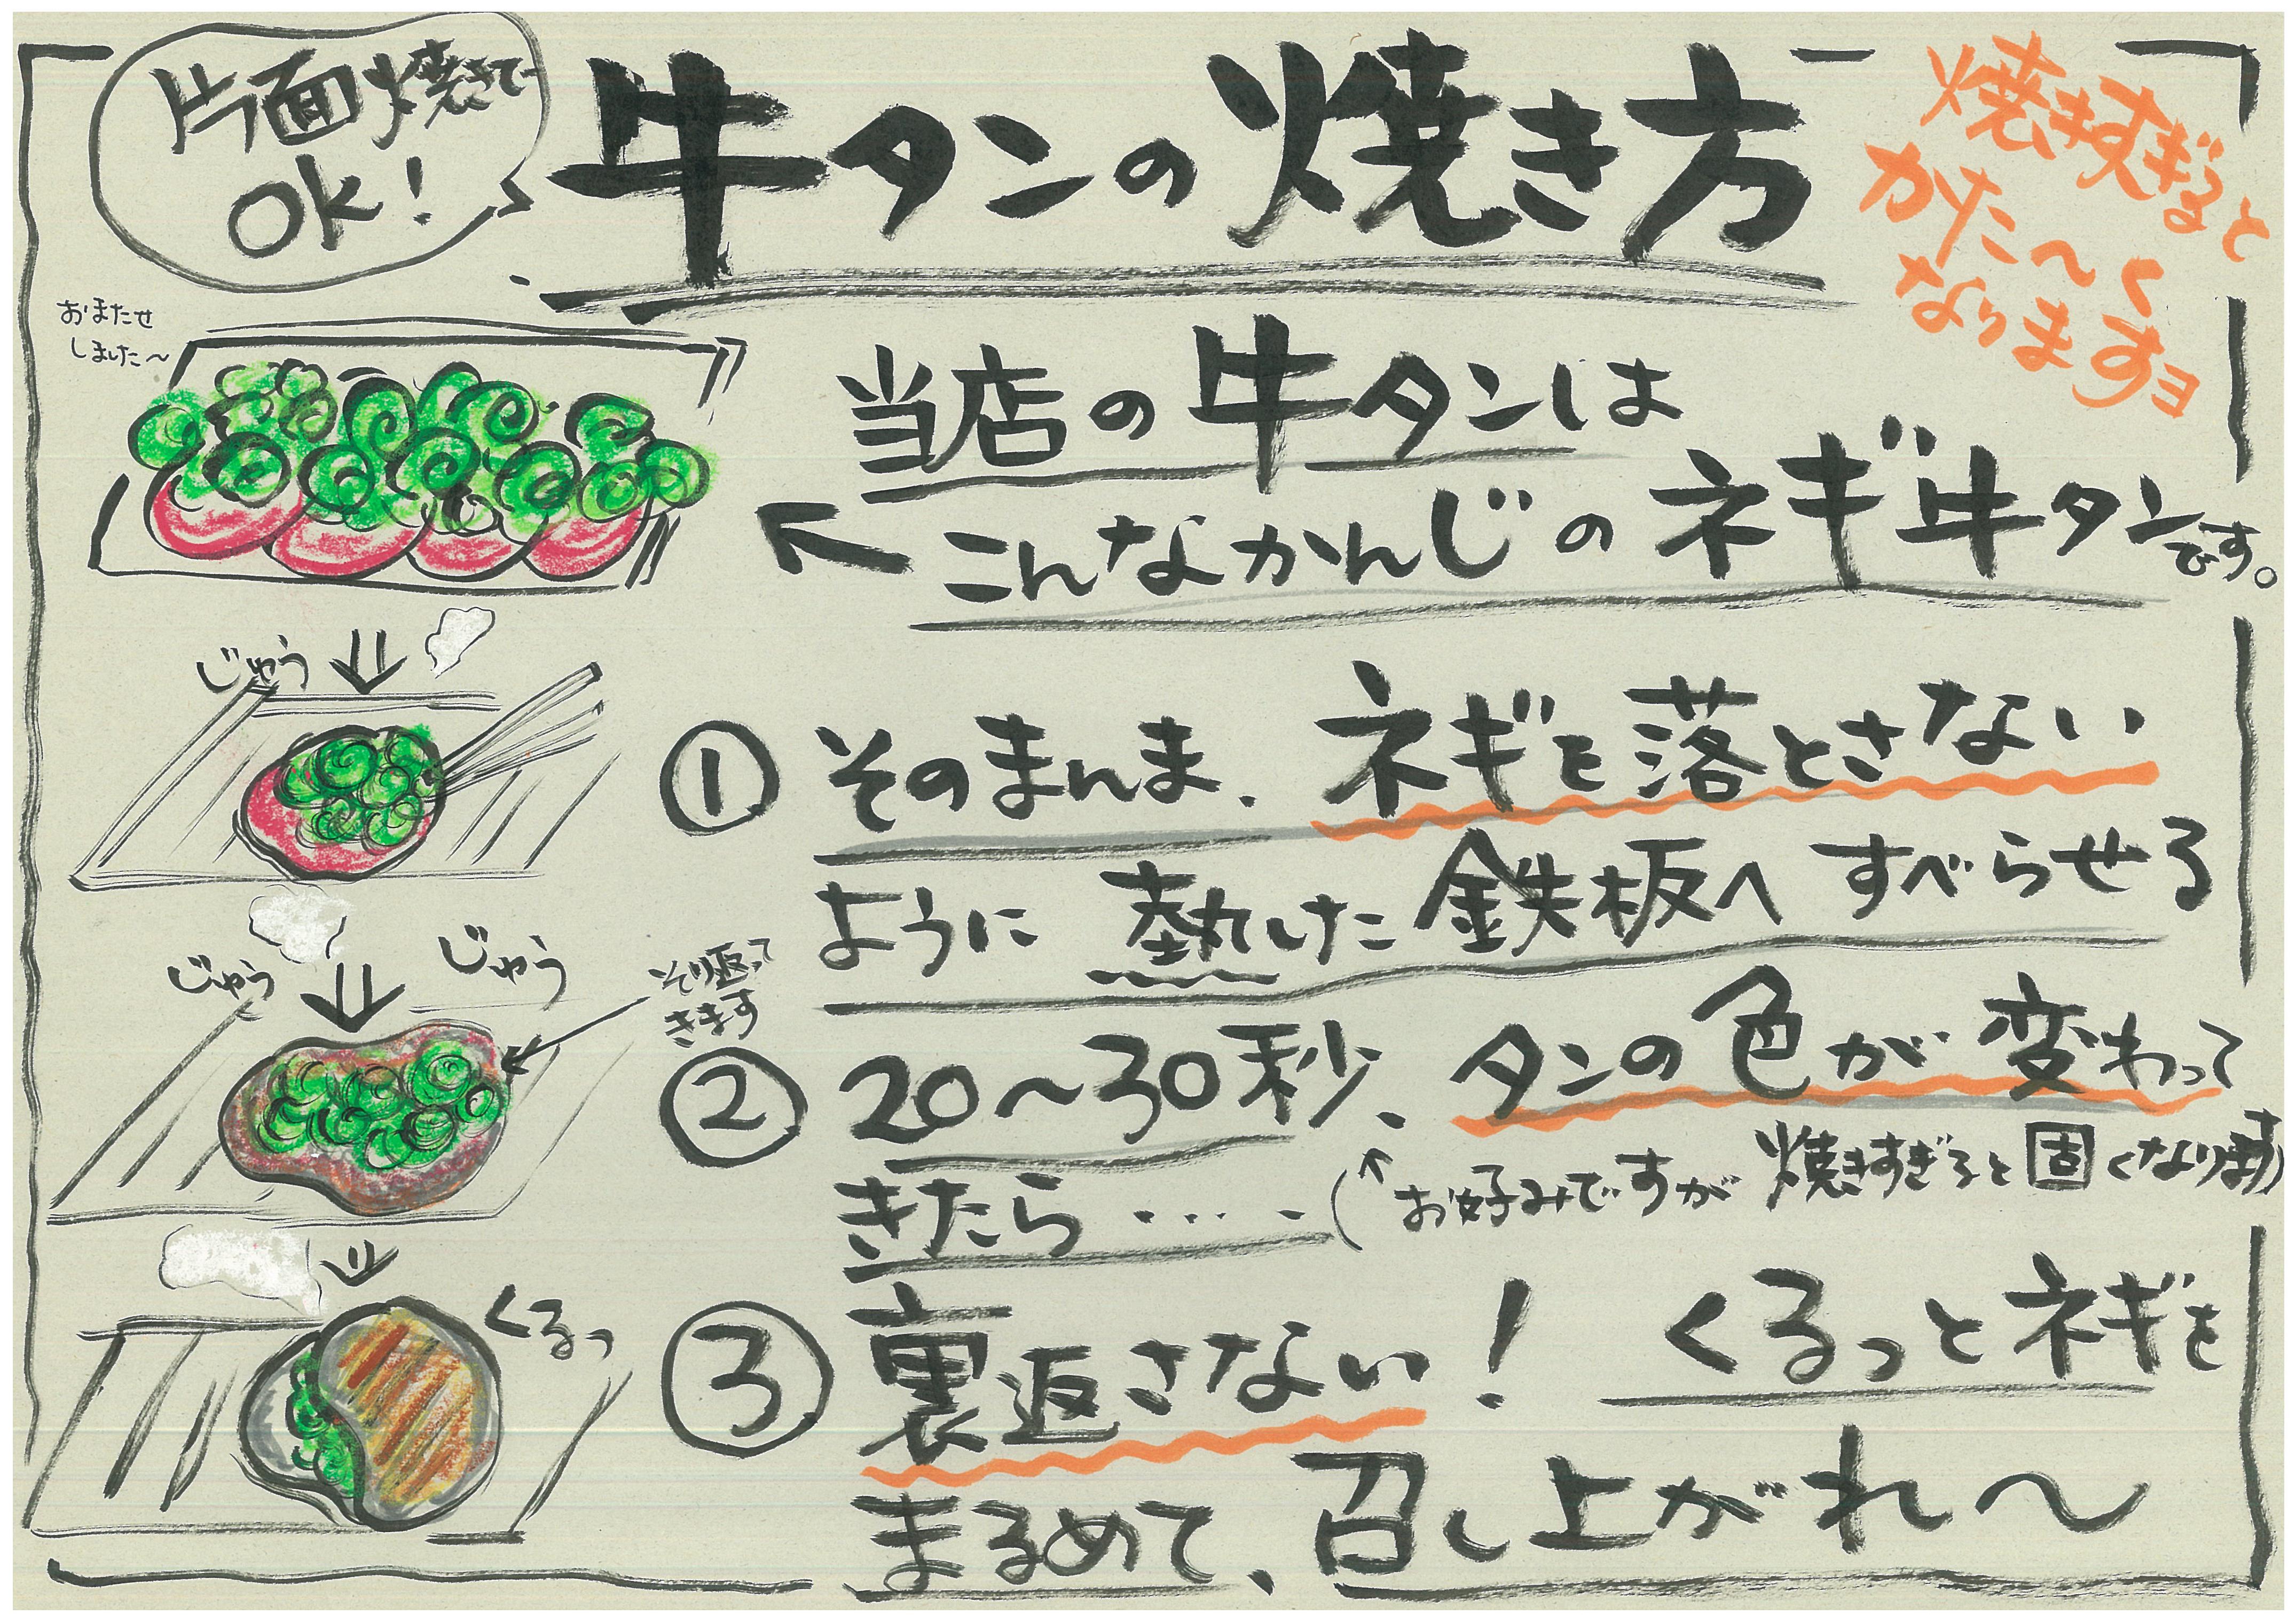 片面焼きで
OK!
牛タンの焼き方
焼きすぎると
かた〜く
なりますョ
おまたせ
しました〜
当店の牛タンは
こんなかんじのネギ牛タンです。
じゅう
①そのまんま、ネギを落とさない
ように熱した鉄板へすべらせる
じゅう
じゅう
そり返って
きます
②20〜30秒、タンの色が変わって
きたら・・・・・(↑お好みですが焼きすぎると固くなります)
くるっ
③裏返さない! くるっとネギを
まるめて、召し上がれ〜